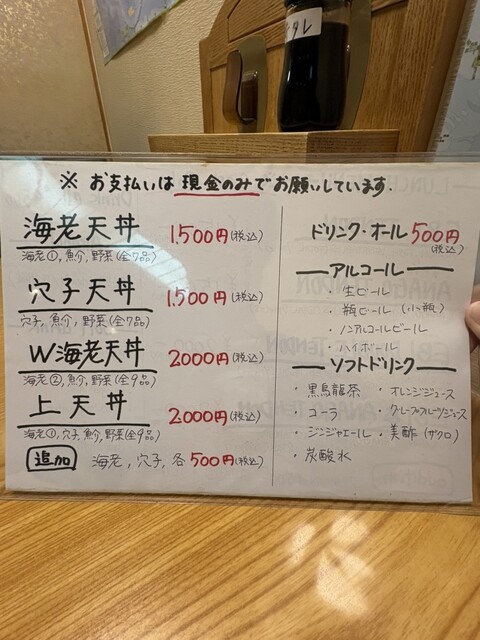 タレ
※ お支払いは現金のみでお願いしています.
海老天丼 1,500円(税込)
海老①,魚介,野菜(全7品)
穴子天丼 1,500円(税込)
穴子,魚介,野菜(全7品)
W海老天丼 2000円(税込)
海老②,魚介,野菜(全9品)
上天丼 2,000円(税込)
海老①,穴子,魚介,野菜(全9品)
追加 海老,穴子,各500円(税込)
ドリンク・オール500円
(税込)
アルコール
・生ビール
・瓶ビール(小瓶)
・ノンアルコールビール
・ハイボール
ソフトドリンク
・黒烏龍茶 ・オレンジジュース
・コーラ ・グレープフルーツジュース
・ジンジャエール ・美酢(ザクロ)
・炭酸水